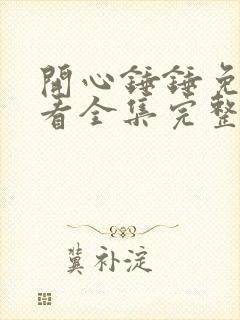 開心錘錘免
看全集完整
冀补淀